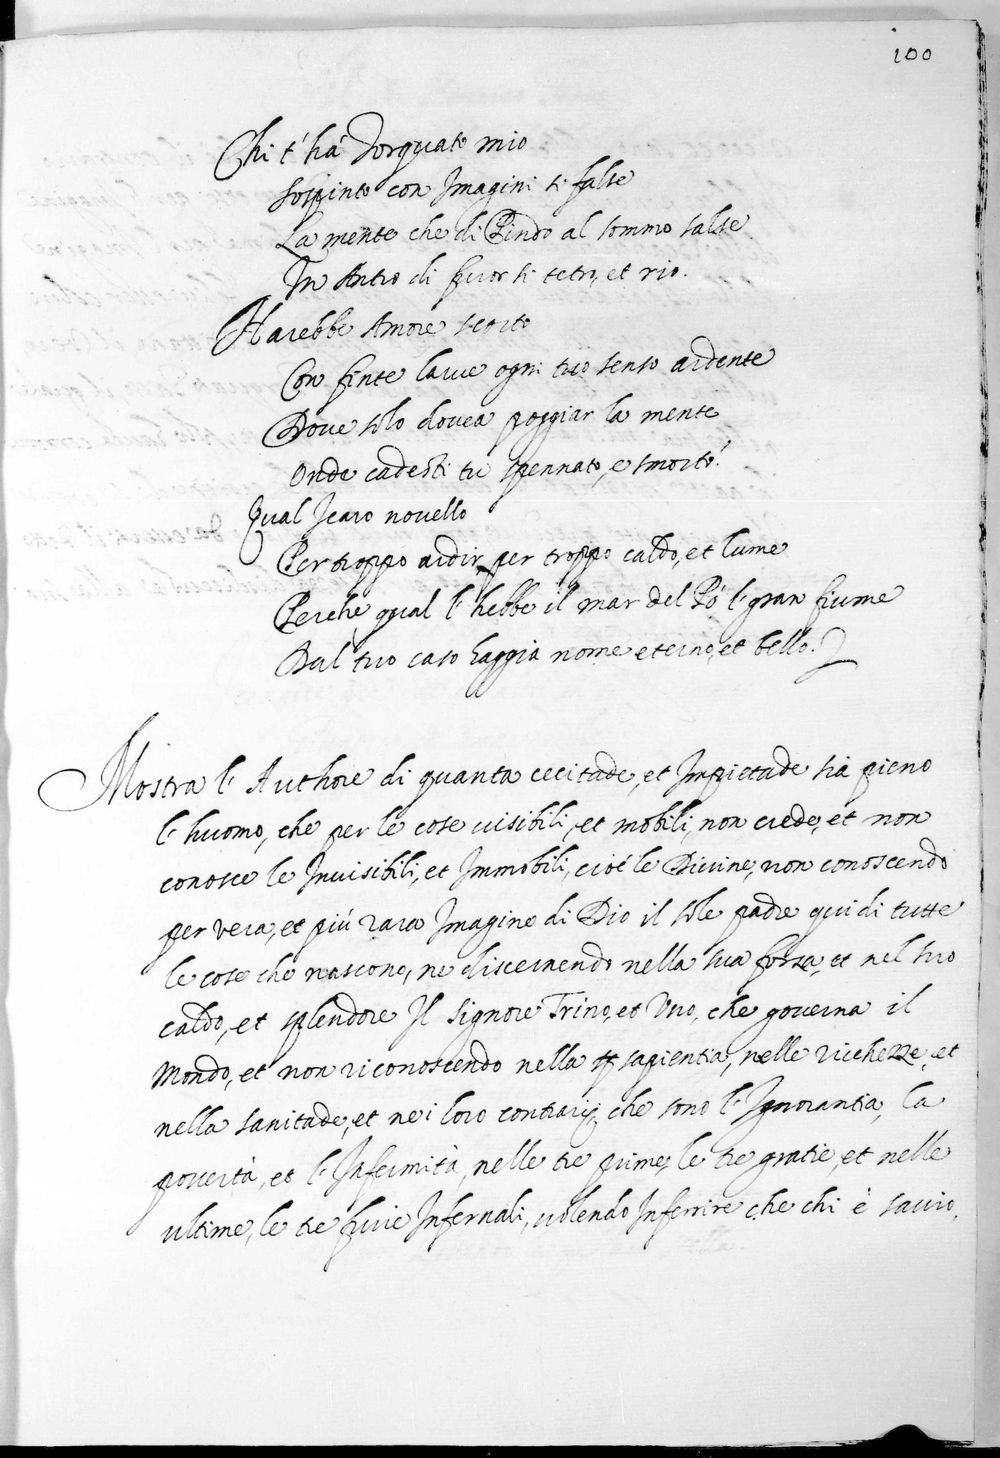 100
Chi t'hà Torquato mio
Sospinto con Imagini si false
La mente che di Pindo al sommo salse
In Antro di fuor si tetro, et rio.
Harebbe Amore scorto
Con finte larue ogni tuo senso ardente
Doue solo douea poggiar la mente
Onde cadesti tù spennato, e smorto?
Qual Icaro nouello
Per troppo ardir, per troppo caldo, et lume
Perche qual l'hebbe il mar del Pò l'gran fiume
Dal tuo caso haggia nome eterno, et bello.
Mostra l'Authore di quanta cecitade, et Impietade sia pieno
l'huomo, che per le cose uisibili, et mobili, non crede, et non
conosce le Inuisibili, et Immobili, cioè le Diuine, non conoscendo
per vera, et più rara Imagine di Dio il sole padre qui di tutte
le cose che nascono, ne discernendo nella sua forza, et nel suo
caldo, et splendore Il Signore Trino, et Vno, che gouerna il
Mondo, et non riconoscendo nella sapientia, nelle ricchezze, et
nella sanitade, et nei loro contrarij, che sono l'Ignorantia, la
pouertà, et l'Infermità, nelle tre prime, le tre gratie, et nelle
ultime, le tre furie Infernali, uolendo Inferrire che chi è sauio,